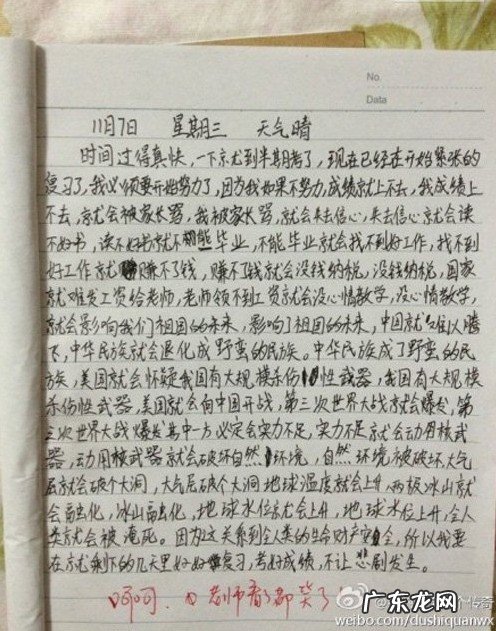 No.
Data
11月7日 星期三 天气晴
时间过得真快,一下就到半期考了,现在已经在开始紧张的
复习了,我必须要开始努力了,因为我如果不努力,成绩就上不去,我成绩上
不去,就会被家长骂,我被家长骂,就会失去信心,失去信心就会读
不好书,读不好书就不能毕业,不能毕业就会找不到好工作,找不到
好工作就赚不了钱,赚不了钱就会没钱纳税,没钱纳税,国家
就难发工资给老师,老师领不到工资就会没心情教学,没心情教学,
就会影响我们祖国的未来,影响了祖国的未来,中国就难以腾
飞,中华民族就会退化成野蛮的民族。中华民族成了野蛮的民
族,美国就会怀疑我国有大规模杀伤性武器,我国有大规模
杀伤性武器,美国就会向中国开战,第三次世界大战就会爆发,第
三次世界大战爆发其中一方必定会实力不足,实力不足就会动用核武
器,动用核武器就会破坏自然环境,自然环境被破坏,大气
层就会破个大洞,大气层破个大洞地球温度就会上升,两极冰山就
会融化,冰山融化,地球水位就会上升,地球水位上升,全人
类就会被淹死。因为这关系到全人类的生命财产安全,所以我要
在就剩下的几天里好好复习,考好成绩,不让悲剧发生。
呵呵,老师看了都笑了
个传奇
广东龙网
weibo.com/dushiquanwx